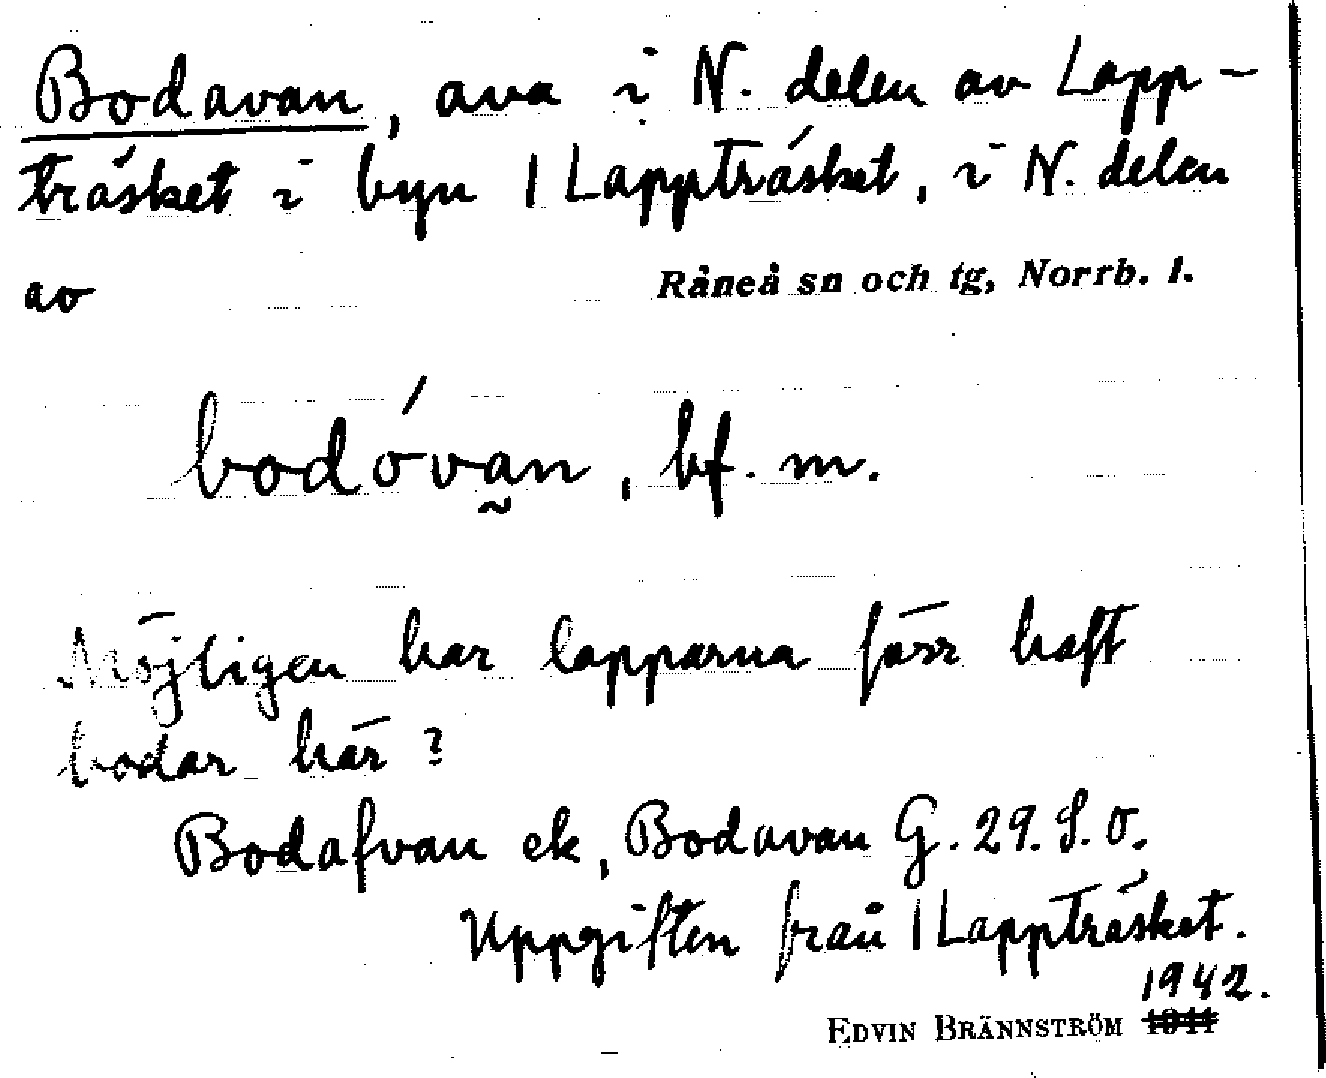 Bodavan, ava i N. delen av Lapp-
träsket i byn 1 Lappträsket, i N. delen
av Råneå sn och tg, Norrb. l.
bodóva̰n, bf. m.
Möjligen har lapparna förr haft
bodar här?
Bodafvan ek, Bodavan G. 29. S. O.
Uppgiften från 1 Lappträsket.
1942.
EDVIN BRÄNNSTRÖM 1941